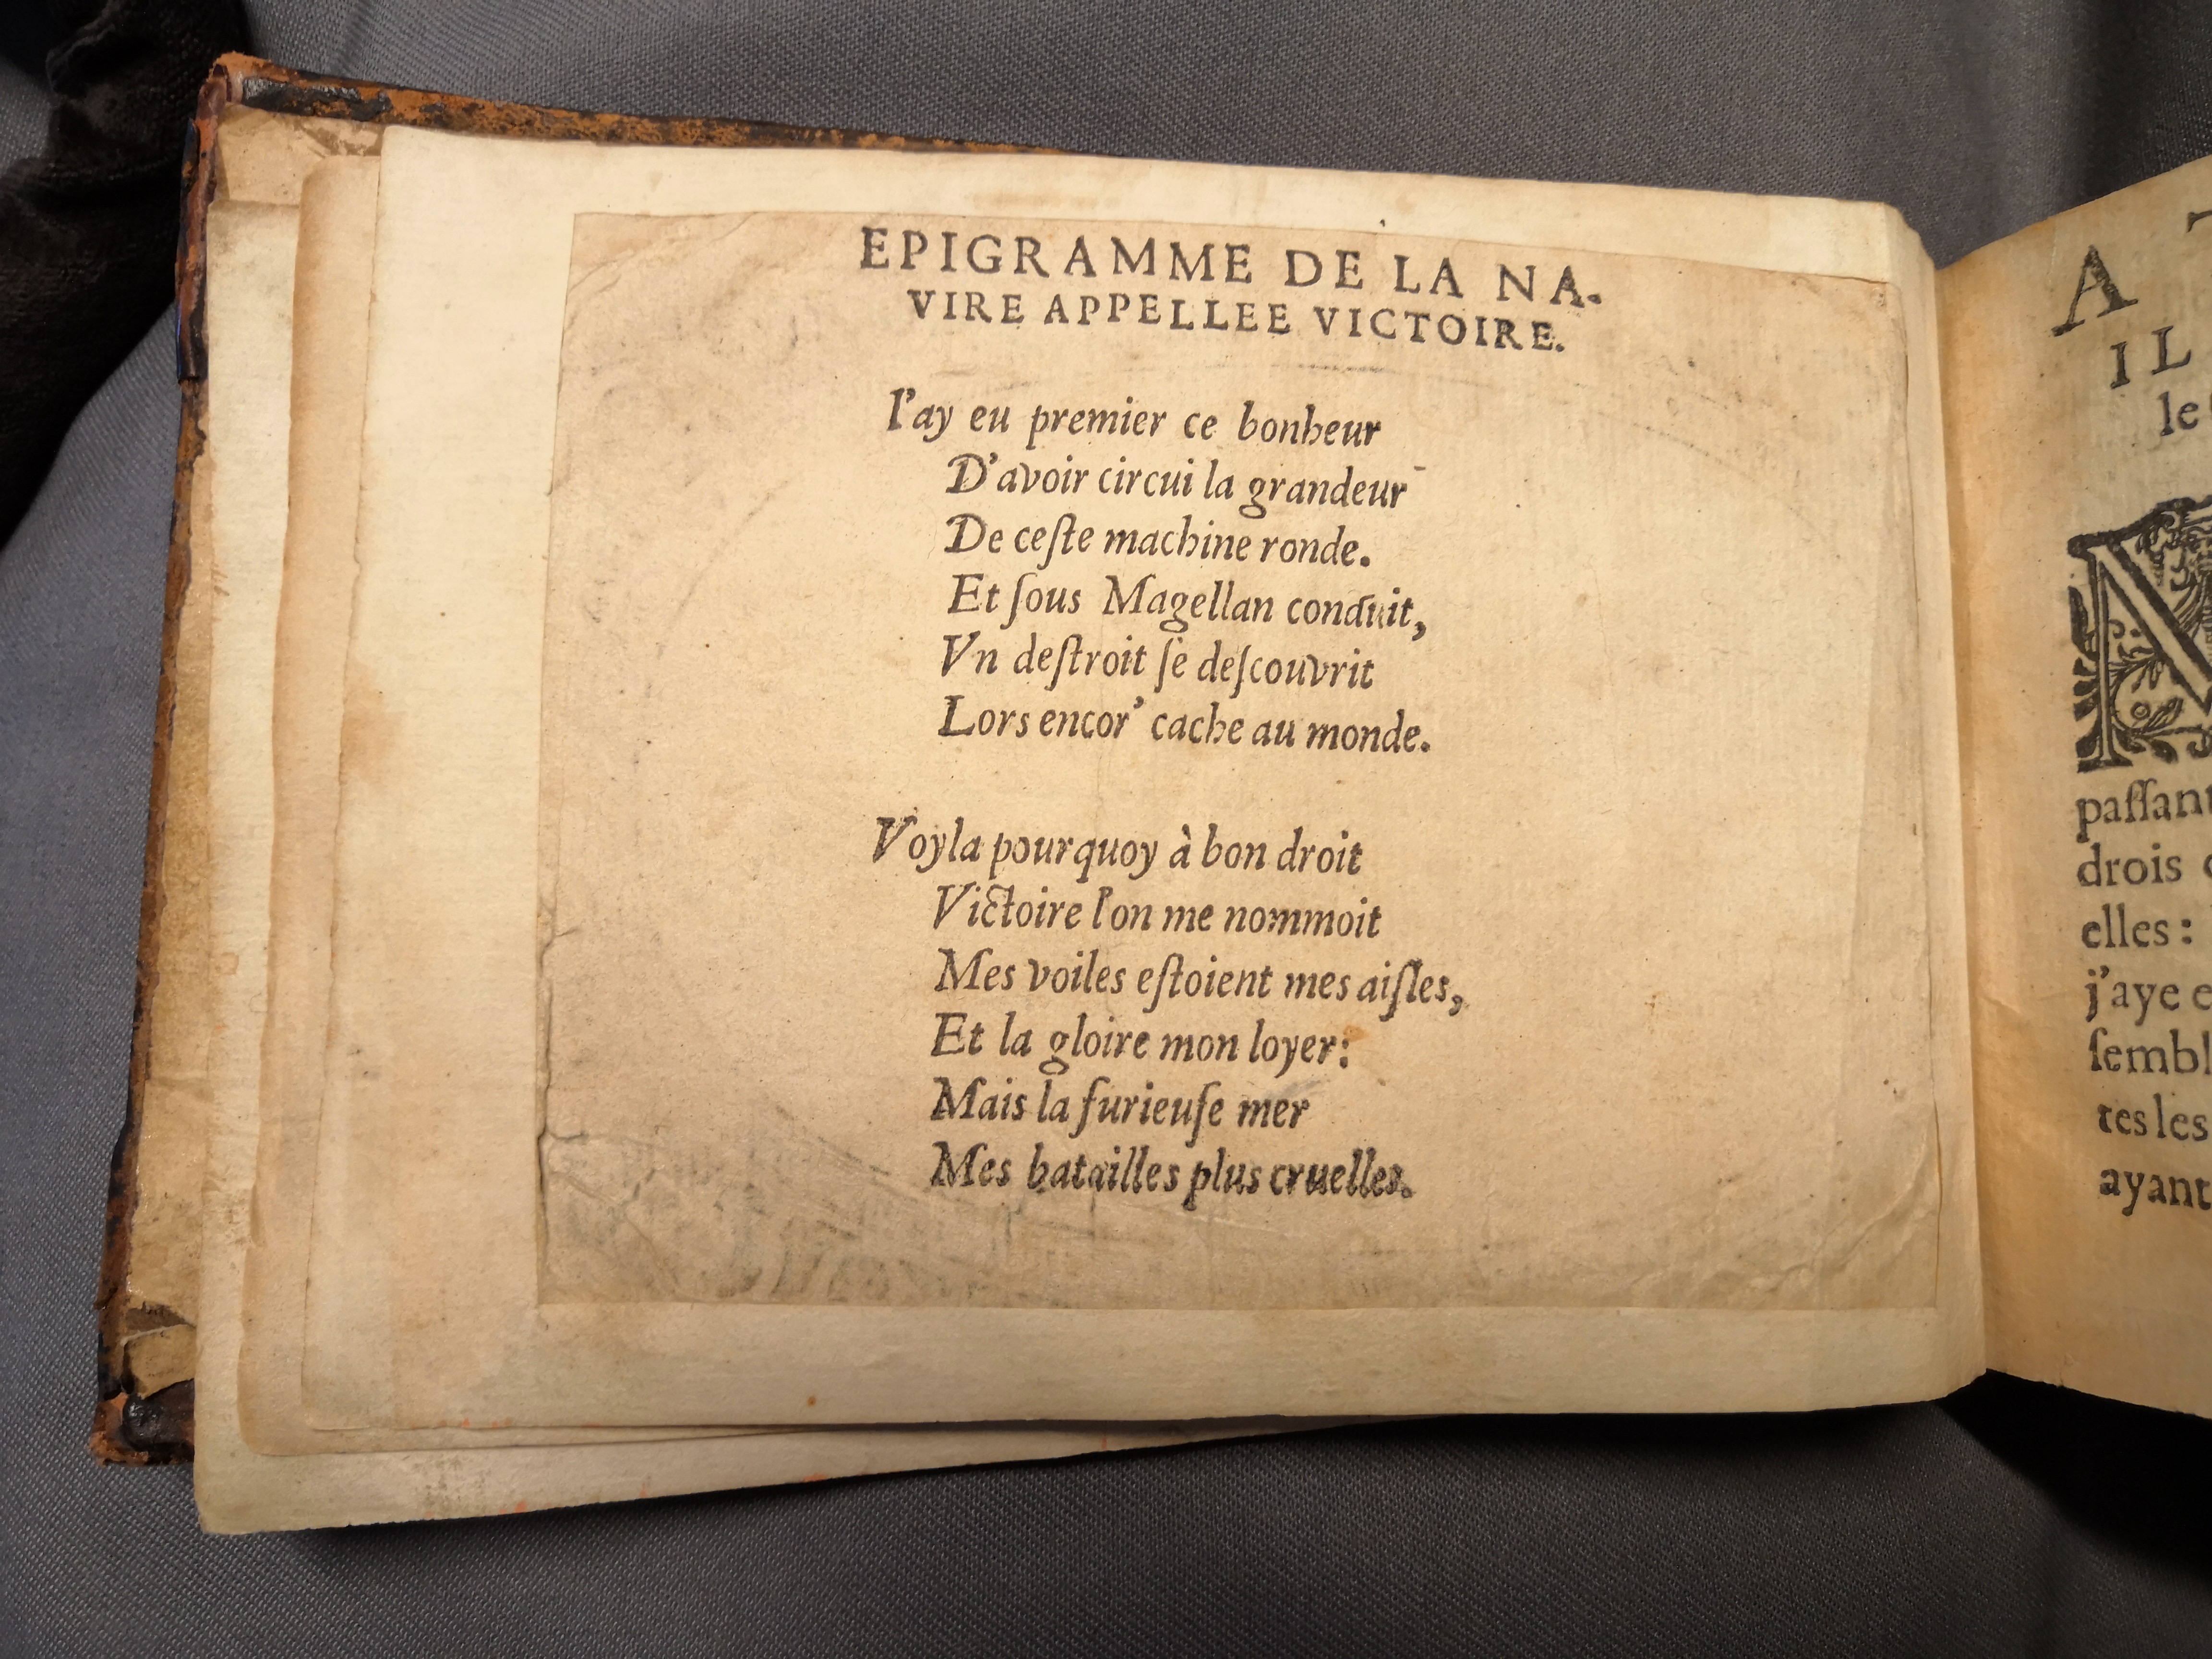 EPIGRAMME DE LA NA-
VIRE APPELLEE VICTOIRE.
I'ay eu premier ce bonheur
D'avoir circui la grandeur
De ceſte machine ronde.
Et ſous Magellan conduit,
Vn deſtroit ſe deſcouvrit
Lors encor' cache au monde.
Voyla pourquoy à bon droit
Victoire l'on me nommoit
Mes voiles eſtoient mes aiſles,
Et la gloire mon loyer:
Mais la furieuſe mer
Mes batailles plus cruelles.
A
IL
le
N
paſſant
drois
elles:
j'aye e
ſembl
tes les
ayant